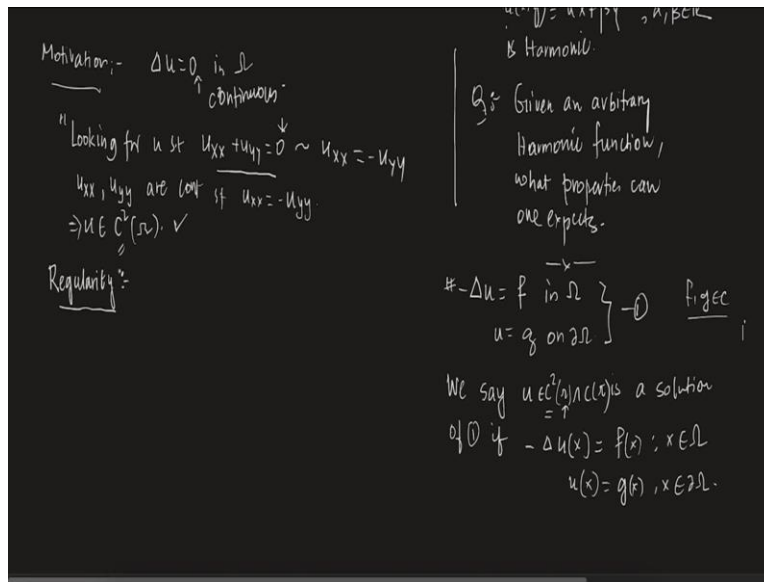 Motivation:- Δu=0 in Ω
↑
continuous.
"Looking for u st u_xx + u_yy = 0 ~ u_xx = -u_yy
u_xx, u_yy are cont st u_xx = -u_yy.
=> u ∈ C²(Ω). ✓
Regularity":-
, α, β ∈ ℝ
is Harmonic.
Q: Given an arbitrary
Harmonic function,
what properties can
one expects.
—x—
# -Δu = f in Ω
u = g on ∂Ω } —①
f, g ∈ C
We say u ∈ C²(Ω) ∩ C(Ω̄) is a solution
of ① if -Δu(x) = f(x) : x ∈ Ω
u(x) = g(x), x ∈ ∂Ω.